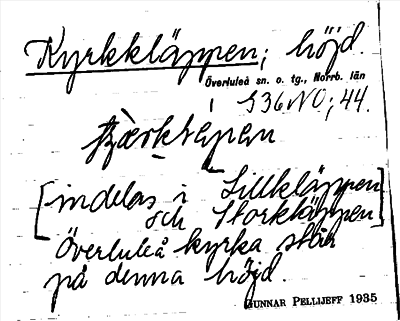 Kyrkkläppen; höjd.
Överluleå sn. o. tg., Norrb. län
S36NO; 44.
[indelas i Lillkläppen
och Storkläppen]
Överluleå kyrka står
på denna höjd.
GUNNAR PELLIJEFF 1935